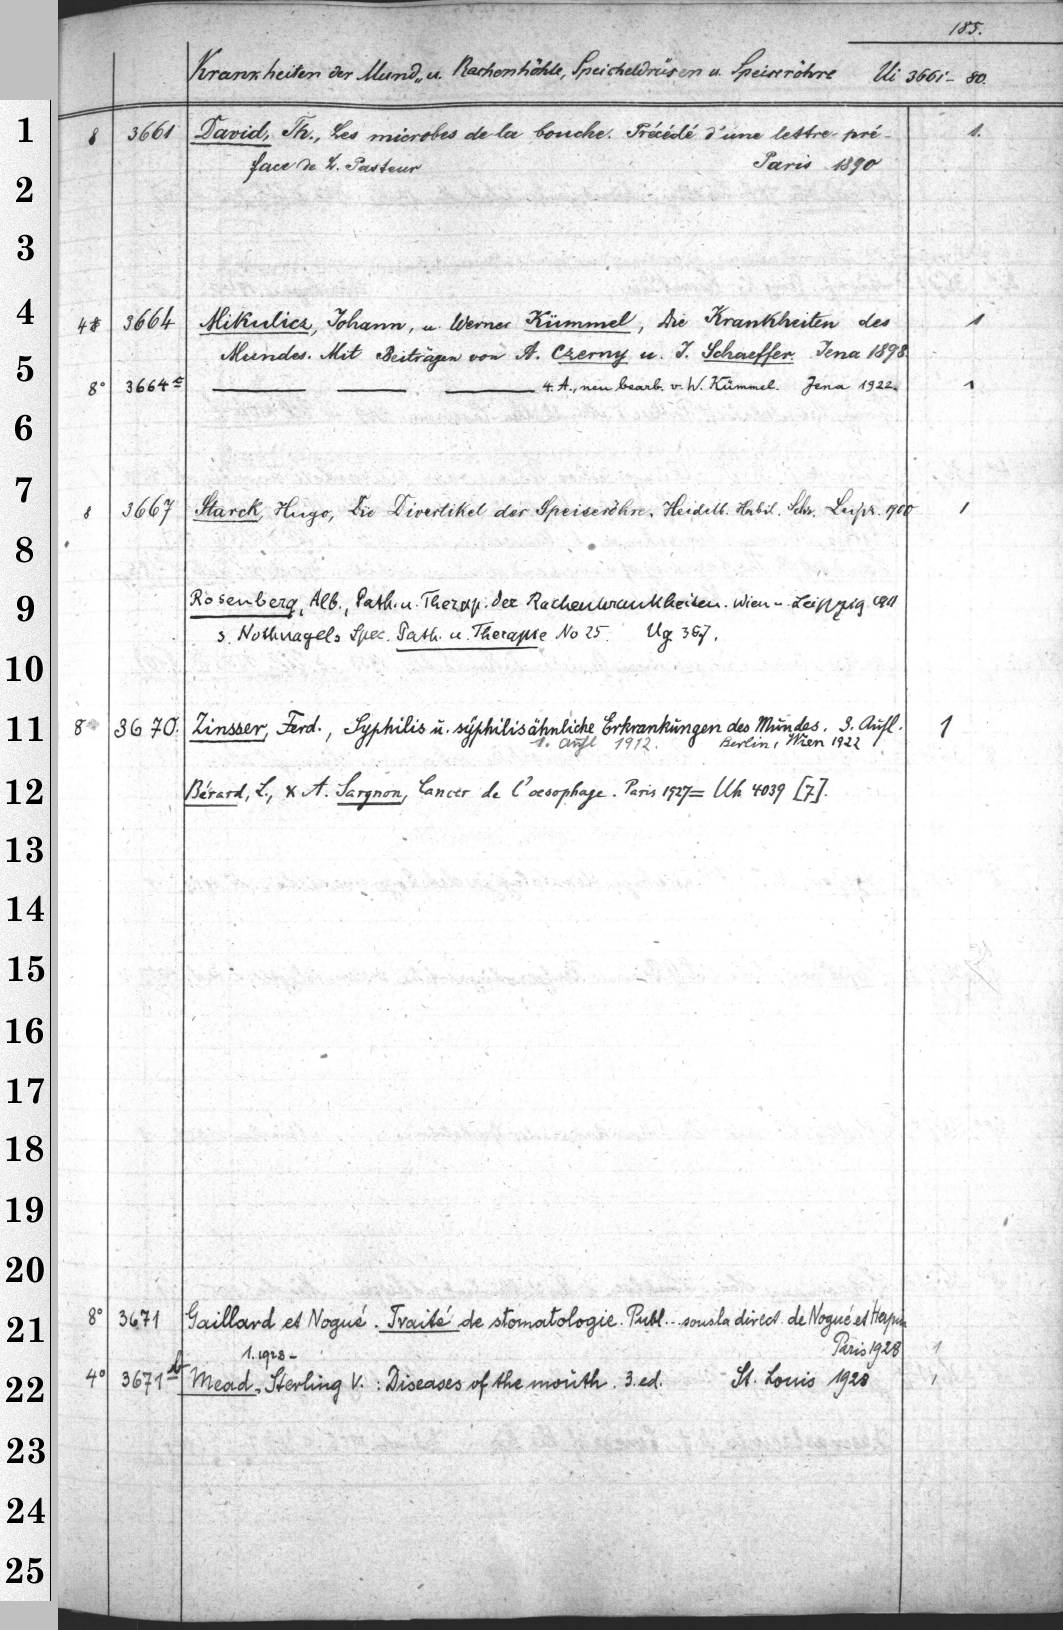 185.
Krankheiten der Mund- u. Rachenhöhle, Speicheldrüsen u. Speiseröhre Ui 3661-80.
1 8 3661 David, Th., Les microbes de la bouche. Précédé d'une lettre-pré- 1.
face de L. Pasteur Paris 1890
2
3
4 4° 3664 Mikulicz, Johann, u. Werner Kümmel, Die Krankheiten des 1
5 Mundes. Mit Beiträgen von A. Czerny u. J. Schaeffer. Jena 1898.
8° 3664 c ——— ——— ——— 4. A., neu bearb. v. W. Kümmel. Jena 1922. 1
6
7 8 3667 Starck, Hugo, Die Divertikel der Speiseröhre. Heidelb. Habil. Schr. Leipz. 1900 1
8
9 Rosenberg, Alb., Path. u. Therap. der Rachenkrankheiten. Wien u. Leipzig
s. Nothnagels Spec. Path. u. Therapie No 25. Ug 367.
10
11 8° 3670. Zinsser, Ferd., Syphilis u. syphilisähnliche Erkrankungen des Mundes. 3. Aufl. 1
1. Aufl 1912. Berlin, Wien 1922
12 Bérard, L., & A. Sargnon, Cancer de l'oesophage. Paris 1927 = Uh 4039 [7].
13
14
15
16
17
18
19
20
21 8° 3671 Gaillard et Nogué. Traité de stomatologie. Publ. sous la direct. de Nogué et Herpin
Paris 1928 1
1. 1928-
22 4° 3671 b Mead, Sterling V.: Diseases of the mouth. 3. ed. St. Louis 1928 1
23
24
25